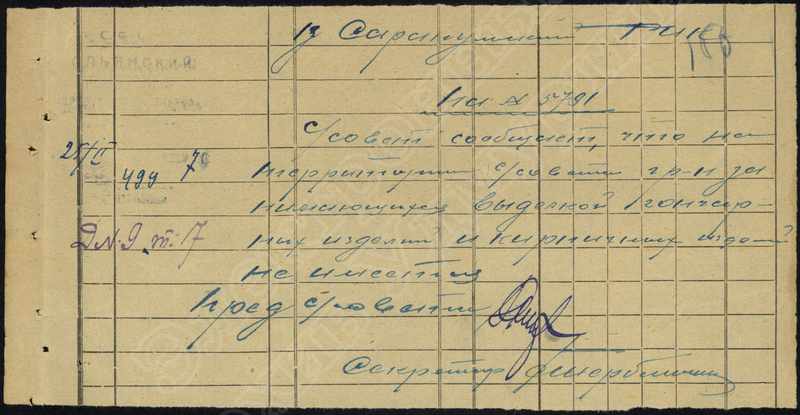 В Сарапульский РИК
На № 5791
С/совет сообщает, что на
территории с/совета гр-н за
нимающихся выделкой гончар-
ных изделий и кирпичных изделий
не имеется
Пред с/совета
Секретарь
25/II
499 70
Д N. 9. т. 7